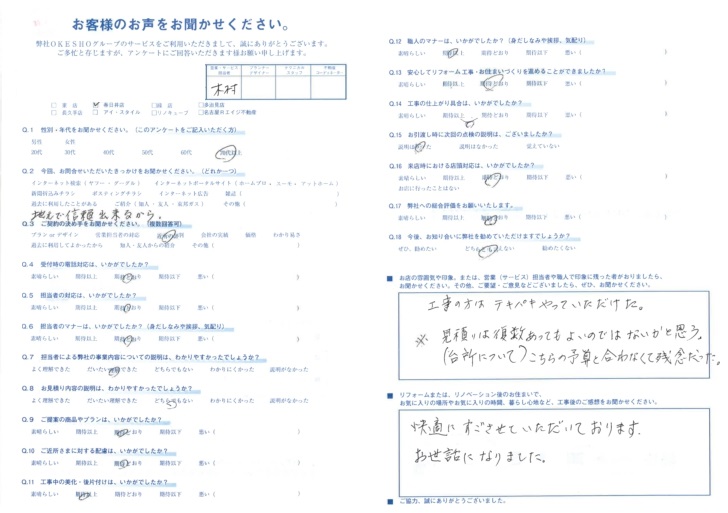 お客様のお声をお聞かせください。
弊社OKESHOグループのサービスをご利用いただきまして、誠にありがとうございます。
ご多忙と存じますが、アンケートにご回答いただきます様お願い申し上げます。
営業・サービス担当者 プランナーデザイナー テクニカルスタッフ 不動産コーディネーター
木村
□ 本店 □ 春日井店 □ 緑店 □ 名東店
□ 長久手店 □ アイ・スタイル □ リノキューブ □ 名古屋エイジ不動産
Q.1 性別・年代をお聞かせください。(このアンケートをご記入いただく方)
男性 女性
20代 30代 40代 50代 60代 70代以上
Q.2 今回、お問合せいただいたきっかけをお聞かせください。(どれか一つ)
インターネット検索(ヤフー・グーグル) インターネットポータルサイト(ホームプロ、スーモ・アットホーム)
新聞折込みチラシ ポスティングチラシ インターネット広告 雑誌( )
過去に利用したことがある ご紹介(知人・友人・雇用ガス) その他( )
地元で信頼出来るから。
Q.3 ご契約の決め手をお聞かせください。(複数回答可)
プラン or デザイン 営業担当者の対応 会社の実績 価格 わかり易さ
過去に利用してよかったから 知人・友人からの紹介 その他( )
Q.4 受付時の電話対応は、いかがでしたか?
素晴らしい 期待以上 期待どおり 期待以下 悪い( )
Q.5 担当者の対応は、いかがでしたか?
素晴らしい 期待以上 期待どおり 期待以下 悪い( )
Q.6 担当者のマナーは、いかがでしたか?(身だしなみや挨拶、気配り)
素晴らしい 期待以上 期待どおり 期待以下 悪い( )
Q.7 担当者による弊社の事業内容についての説明は、わかりやすかったでしょうか?
よく理解できた だいたい理解できた どちらでもない わかりにくかった 説明がなかった
Q.8 お見積り内容の説明は、わかりやすかったでしょうか?
よく理解できた だいたい理解できた どちらでもない わかりにくかった 説明がなかった
Q.9 ご提案の商品やプランは、いかがでしたか?
素晴らしい 期待以上 期待どおり 期待以下 悪い( )
Q.10 ご近所さまに対する配慮は、いかがでしたか?
素晴らしい 期待以上 期待どおり 期待以下 悪い( )
Q.11 工事中の美化・後片付けは、いかがでしたか?
素晴らしい 期待以上 期待どおり 期待以下 悪い( )
Q.12 職人のマナーは、いかがでしたか?(身だしなみや挨拶、気配り)
素晴らしい 期待以上 期待どおり 期待以下 悪い( )
Q.13 安心してリフォーム工事・お住まいづくりを進めることができましたか?
素晴らしい 期待以上 期待どおり 期待以下 悪い( )
Q.14 工事の仕上がり具合は、いかがでしたか?
素晴らしい 期待以上 期待どおり 期待以下 悪い( )
Q.15 お引渡し時に次回の点検の説明は、ございましたか?
説明はあった 説明はなかった 覚えていない
Q.16 来店時における店頭対応は、いかがでしたか?
素晴らしい 期待以上 期待どおり 期待以下 悪い( )
お店に行ったことはない
Q.17 弊社への総合評価をお願いいたします。
素晴らしい 期待以上 期待どおり 期待以下 悪い( )
Q.18 今後、お知り合いに弊社を勧めていただけますでしょうか?
ぜひ、勧めたい どちらともいえない 勧めたくない
■ お店の雰囲気や印象。または、営業(サービス)担当者や職人で印象に残った者がおりましたら、
お聞かせください。その他、ご要望・ご意見などございましたら、ぜひ、お聞かせください。
工事の方はテキパキやっていただけた。
※ 見積りは複数あってもよいのではないかと思う。
(台所について)こちらの予算と合わなくて残念だった。
■ リフォームまたは、リノベーション後のお住まいで、
お気に入りの場所やお気に入りの時間、暮らし心地など、工事後のご感想をお聞かせください。
快適にすごさせていただいております。
お世話になりました。
■ ご協力、誠にありがとうございました。